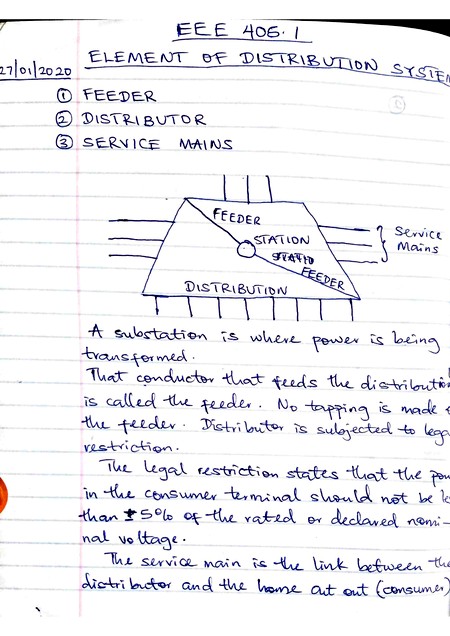 EEE 406.1
27/01/2020 ELEMENT OF DISTRIBUTION SYSTEM
① FEEDER
② DISTRIBUTOR
③ SERVICE MAINS
FEEDER
STATION
FEEDER
DISTRIBUTION
Service
Mains
A substation is where power is being
transformed.
That conductor that feeds the distribution
is called the feeder. No tapping is made
the feeder. Distributor is subjected to lega
restriction.
The legal restriction states that the pow
in the consumer terminal should not be le
than ±5% of the rated or declared nomi-
nal voltage.
The service main is the link between the
distributor and the home cut out (consumer)